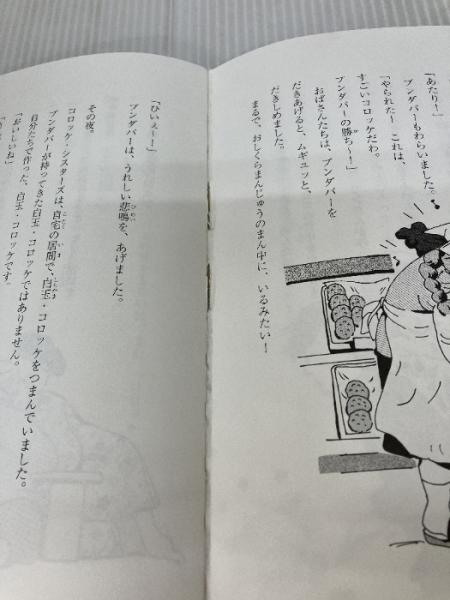 「あたり！」
ブンダバーもわらいました。
「やられた！　これは、
すごいコロッケだわ。
ブンダバーの勝ちー！」
おばさんたちは、ブンダバーを
だきあげると、ムギュッと、
だきしめました。
まるで、おしくらまんじゅうのまん中に、いるみたい！
「ひいぇー！」
ブンダバーは、うれしい悲鳴を、あげました。
その夜。
コロッケ・シスターズは、自宅の居間で、白玉・コロッケをつまんでいました。
ブンダバーが持ってきた白玉・コロッケではありません。
自分たちで作った、白玉・コロッケです。
「おいしいね」